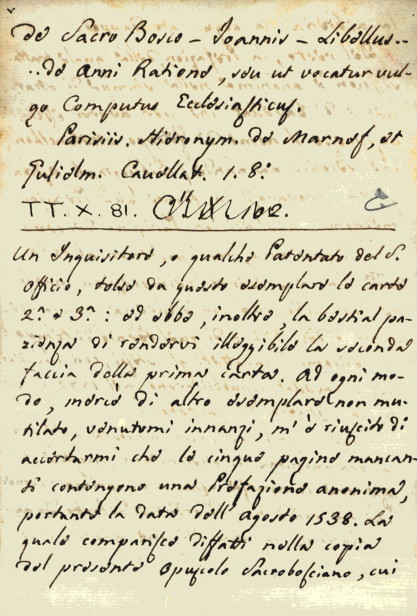 de Sacro Bosco - Joannis - Libellus..
..de Anni Ratione, seu ut vocatur vul-
go Computus Ecclesiasticus.
Parisiis. Hieronym. de Marnef, et
Gulielm. Cavellat. 1. 8.°
TT. X. 81.
Un Inquisitore, o qualche Patentato del S.
Officio, tolse da questo esemplare le carte
2.ª e 3.ª: ed ebbe, inoltre, la bestial pa-
zienza di rendervi illeggibile la seconda
faccia della prima carta. Ad ogni mo-
do, mercè di altro esemplare non mu-
tilato, venutomi innanzi, m'è riuscito di
accertarmi che le cinque pagine mancan-
ti contengono una Prefazione anonima,
portante la data dell'Agosto 1538. La
quale comparisce diffatti nella copia
del presente Opuscolo Sacrobosciano, cui